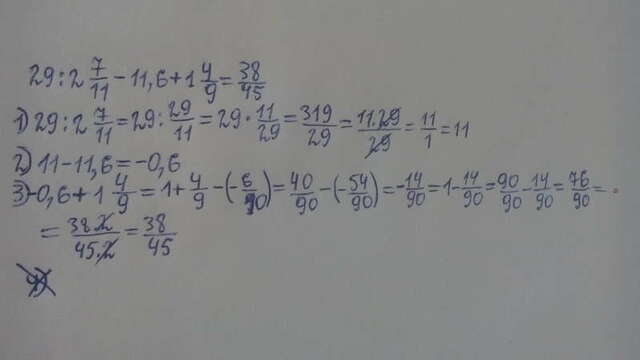 29:2 7/11 - 11,6 + 1 4/9 = 38/45
1) 29:2 7/11 = 29: 29/11 = 29 · 11/29 = 319/29 = 11·29/29 = 11/1 = 11
2) 11 - 11,6 = -0,6
3) -0,6 + 1 4/9 = 1 + 4/9 - (- 6/10) = 40/90 - (- 54/90) = - 14/90 = 1 - 14/90 = 90/90 - 14/90 = 76/90 =
= 38·2/45·2 = 38/45